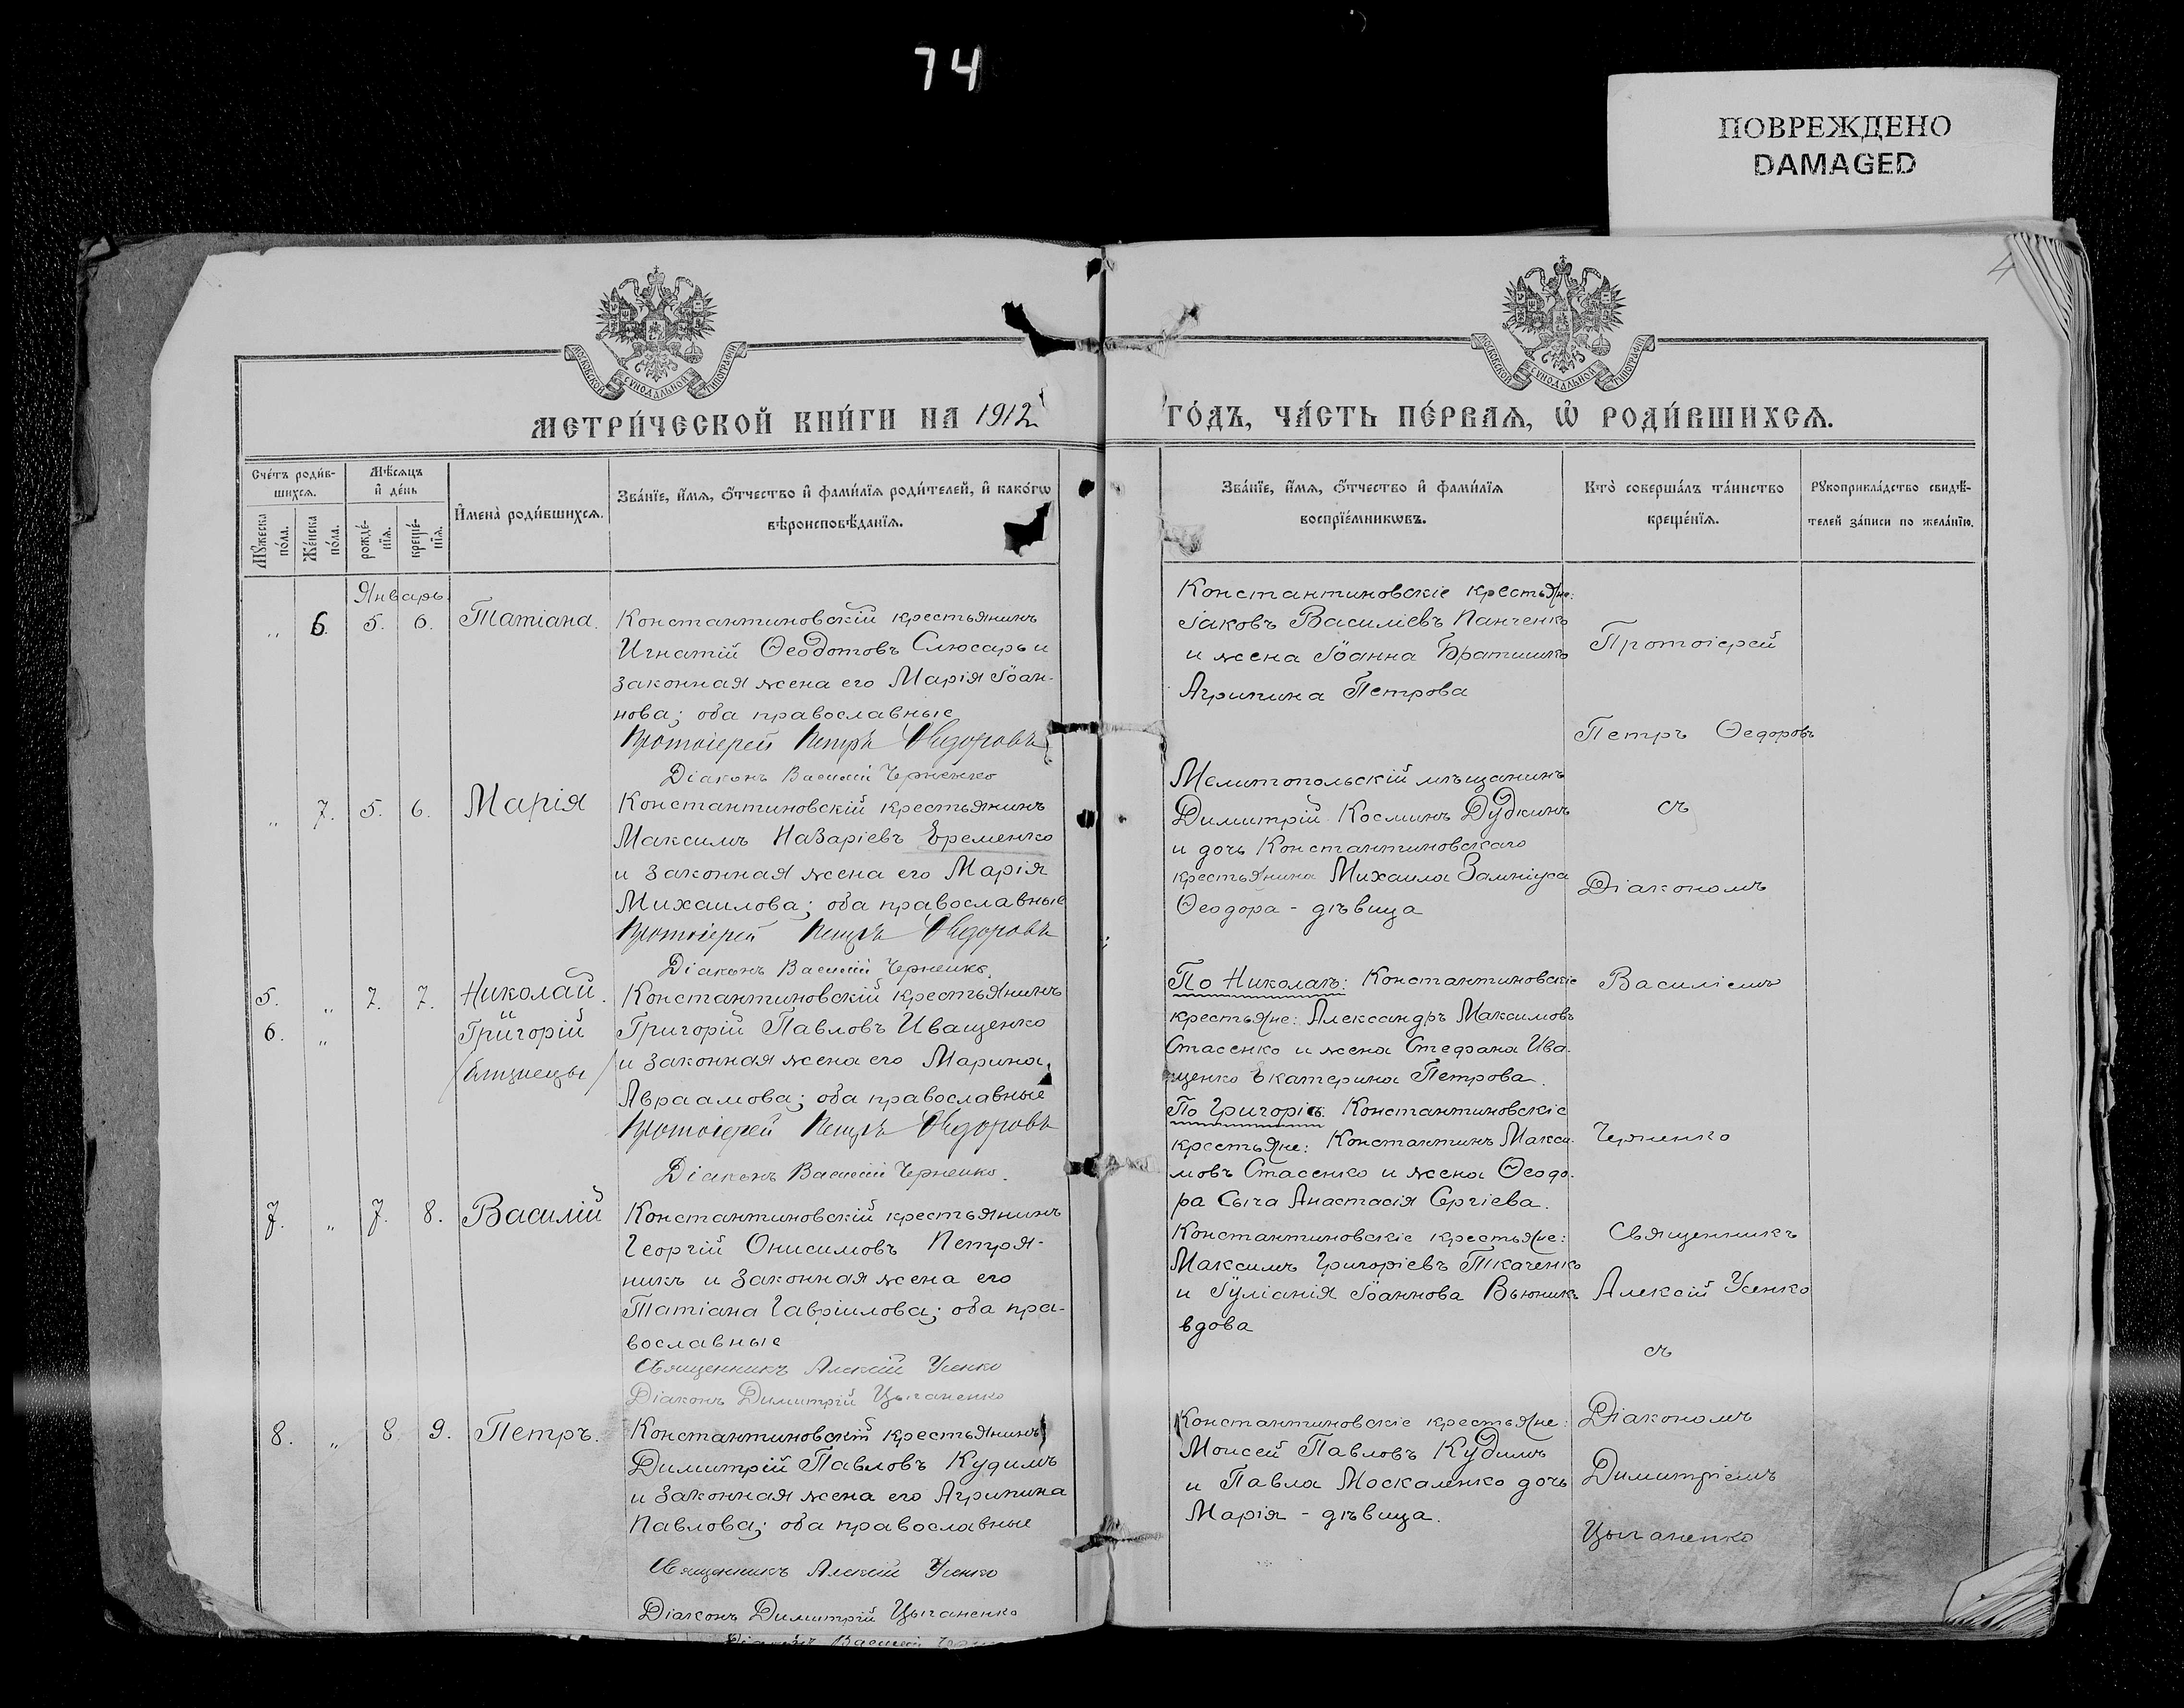 74
ПОВРЕЖДЕНО
DAMAGED
4
МОСКОВСКОЙ СѴНОДАЛЬНОЙ ТИПОГРАФІИ
МОСКОВСКОЙ СѴНОДАЛЬНОЙ ТИПОГРАФІИ
МЕТРИ́ЧЕСКОЙ КНИ́ГИ НА 1912
ГО́ДЪ, ЧА́СТЬ ПЕ́РВАѦ, Ѡ҆ РОДИ́ВШИХСѦ.
Сче́тъ роди́в-
шихсѧ.
Мꙋ́жеска по́ла.
Же́нска по́ла.
Мѣ́сѧцъ
и҆ де́нь
рожде́-
нїѧ.
креще́-
нїѧ.
И҆мена̀ роди́вшихсѧ.
Зва́нїе, и҆́мѧ, ѻ҆́тчество и҆ фами́лїѧ роди́телей, и҆ како́гѡ
вѣроисповѣ́данїѧ.
Зва́нїе, и҆́мѧ, ѻ҆́тчество и҆ фами́лїѧ
воспрїе́мникѡвъ.
Кто̀ соверша́лъ та́инство
креще́нїѧ.
Рꙋкоприкла́дство свидѣ́-
телей за́писи по жела́нїю.
Январь
„ 6. 5. 6. Татіана.
Константиновскій крестьянинъ
Игнатій Ѳеодотовъ Слюсарь и
законная жена его Марія Іоан-
нова; оба православные
Протоіерей Петръ Ѳедоровъ
Діаконъ Василій Черненко
Константиновскіе крестьяне:
Іаковъ Василіевъ Панченко
и жена Іоанна Братишко
Агрипина Петрова
Протоіерей
Петръ Ѳедоровъ
„ 7. 5. 6. Марія
Константиновскій крестьянинъ
Максимъ Назаріевъ Еременко
и законная жена его Марія
Михаилова; оба православные
Протоіерей Петръ Ѳедоровъ
Діаконъ Василій Черненко.
Мелитопольскій мѣщанинъ
Димитрій Косминъ Дудкинъ
и дочь Константиновскаго
крестьянина Михаила
Ѳеодора - дѣвица
съ
Діакономъ
5. „ 7. 7. Николай.
и
6. „ Григорій
/близнецы/
Константиновскій крестьянинъ
Григорій Павловъ Иващенко
и законная жена его Марина
Авраамова; оба православные
Протоіерей Петръ Ѳедоровъ
Діаконъ Василій Черненко.
По Николаѣ: Константиновскіе
крестьяне: Александръ Максимовъ
Стасенко и жена Стефана Ива-
щенко Екатерина Петрова.
По Григоріѣ: Константиновскіе
крестьяне: Константинъ Макси-
мовъ Стасенко и жена Ѳеодо-
ра Сыча Анастасія Сергіева.
Василіемъ
Черненко
7. „ 7. 8. Василій
Константиновскій крестьянинъ
Георгій Онисимовъ Петря-
никъ и законная жена его
Татіана Гавріилова; оба пра-
вославные
Священникъ Алексій Усенко
Діаконъ Димитрій Цыганенко
Константиновскіе крестьяне:
Максимъ Григоріевъ Ткаченко
и Іуліанія Іоаннова Вьюникъ
вдова
Священникъ
Алексій Усенко
съ
8. „ 8. 9. Петръ.
Константиновскій крестьянинъ
Димитрій Павловъ Кудимъ
и законная жена его Агрипина
Павлова; оба православные
Священникъ Алексій Усенко
Діаконъ Димитрій Цыганенко
Константиновскіе крестьяне:
Моисей Павловъ Кудимъ
и Павла Москаленко дочь
Марія - дѣвица.
Діакономъ
Димитріемъ
Цыганенко
Діаконъ Василій